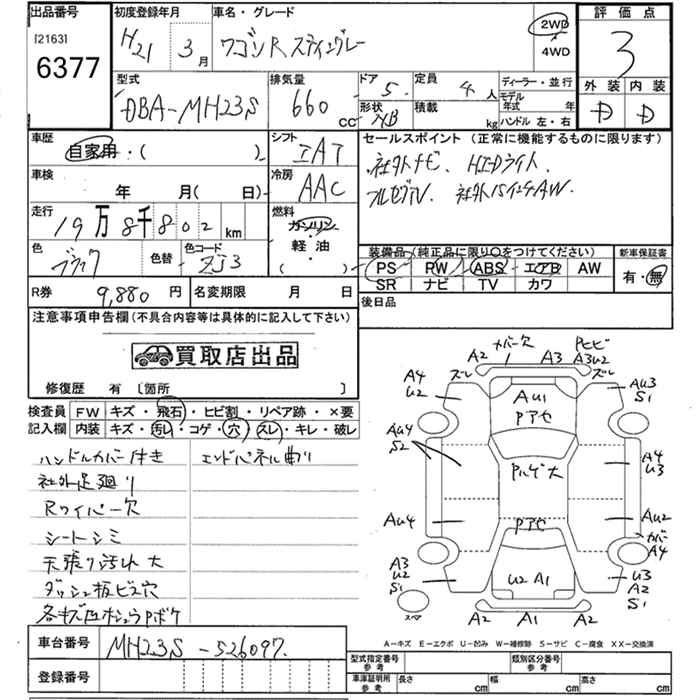 出品番号
[2163]
6377
初度登録年月
H21 3月
車名・グレード
ワゴンR スティングレー
2WD
4WD
評価点
3
外装 内装
D D
型式
DBA-MH23S
排気量
660 cc
ドア 5
形状 HB
定員 4人
積載 kg
ディーラー・並行
モデル年式 年
ハンドル 左・右
車歴
自家用・( )
シフト
IAT
車検
年 月( 日)
冷房
AAC
走行
19万8千802km
燃料
ガソリン・
軽油・
( )
色
ブラック
色替
色コード
ZJ3
セールスポイント (正常に機能するものに限ります)
社外ナビ、HIDライト、
フルセグTV、社外15インチAW、
装備品(純正品に限り〇をつけてください)
PS PW ABS エアB AW
SR ナビ TV カワ
新車保証書
有・無
R券 9,880円
名変期限 月 日
後日品
注意事項申告欄(不具合内容等は具体的に記入して下さい)
買取店出品
修復歴 有 〔箇所 〕
検査員記入欄
FW キズ・飛石・ヒビ割・リペア跡・×要
内装 キズ・汚レ・コゲ・穴・スレ・キレ・破レ
ハンドルカバー付き
エンドパネル曲り
社外足廻り
Rワイパー欠
シートシミ
天張り汚れ大
ダッシュ板ビス穴
カバー欠
A2 A3
ズレ
A4
U2
A3U2
ズレ
AU3
S1
AU1
Pアセ
AU4
S2
A4
U3
AU4
Pアセ
AU2
カバー
A4
A3
U2
S1
U2 A1
U3
A2
S1
スペア
A2 A1 A2
A-キズ E-エクボ U-凹み W-補修跡 S-サビ C-腐食 XX-交換済
車台番号
MH23S-526097
登録番号
型式指定番号 参考
類別区分番号 参考
車庫証明所 参考
長さ cm 幅 cm 高さ cm